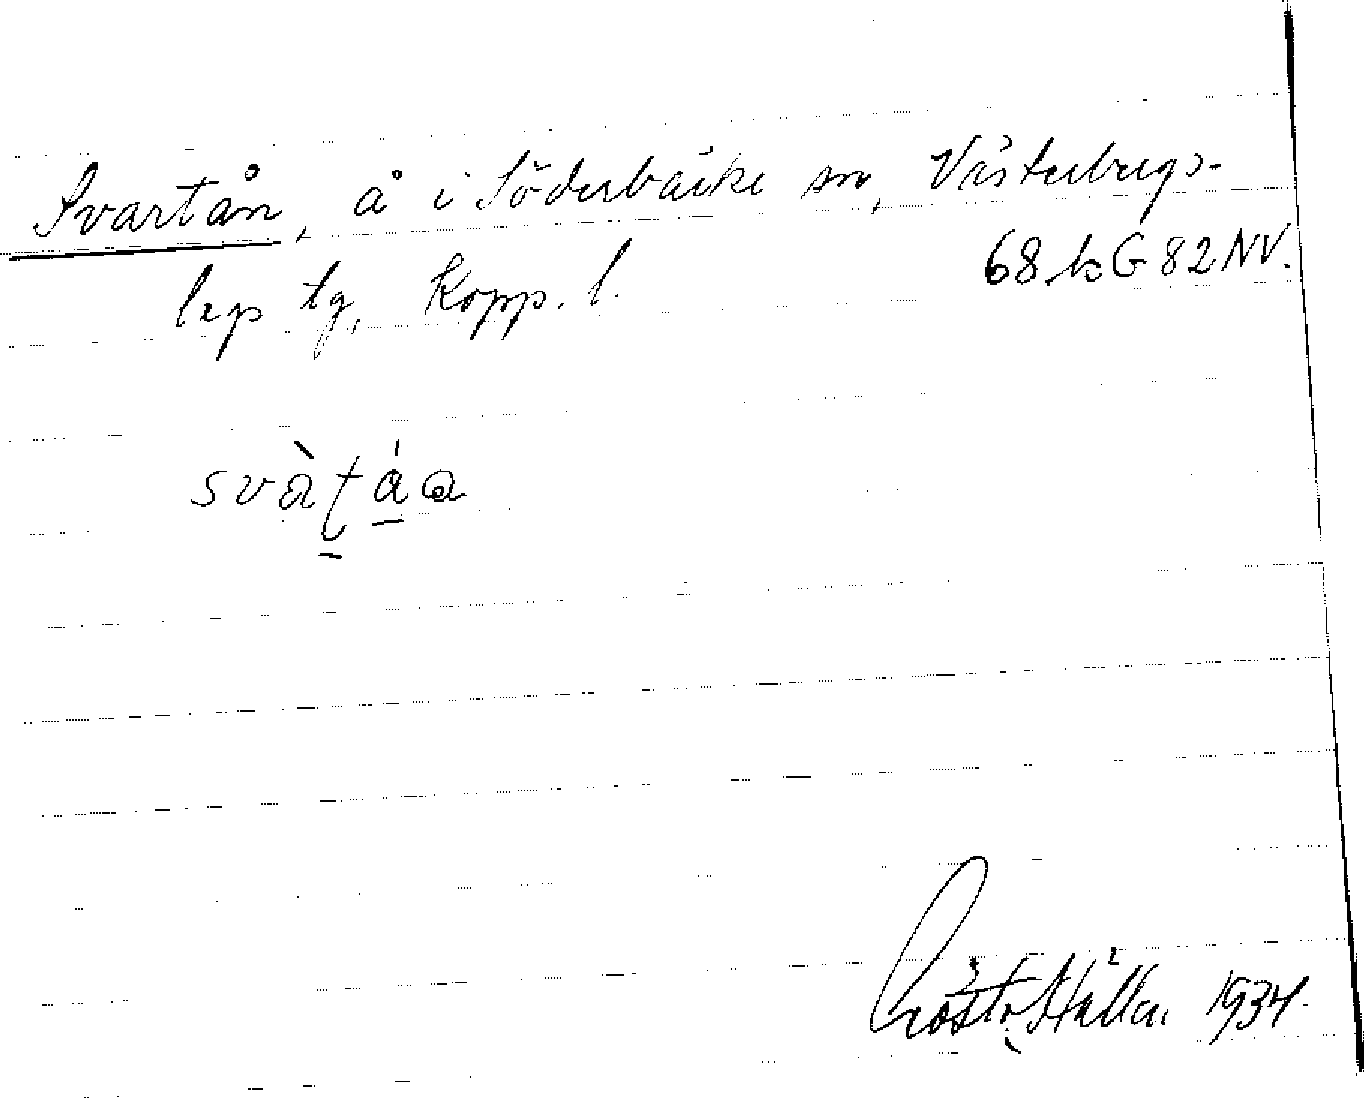 Svartån, å i Söderbärke sn, Västerbergs-
lags tg, Kopp. l. 68 k G 82 NV.
svàʈáa
1934.